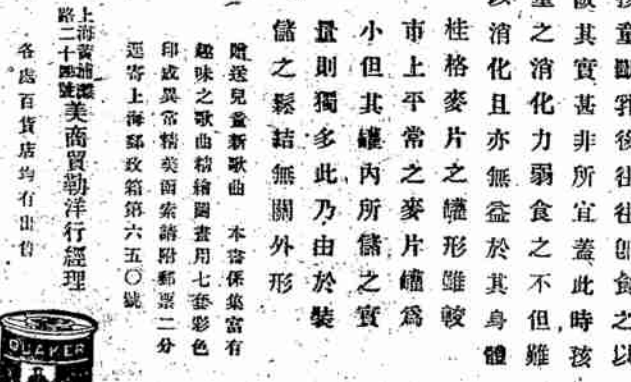 孩童斷乳後往往卽食之以
飯其實甚非所宜蓋此時孩
童之消化力弱食之不但難
以消化且亦無益於其身體
桂格麥片之罐形雖較
市上平常之麥片罐爲
小但其罐內所儲之實
量則獨多此乃由於裝
儲之鬆結無關外形
贈送兒童新歌曲 本書係集富有
趣味之歌曲精繪圖畫用七套彩色
印成異常精美函索請附郵票二分
逕寄上海郵政箱第六五〇號
上海黃浦灘
路二十四號
美商貿勒洋行經理
各處百貨店均有出售
QUAKER